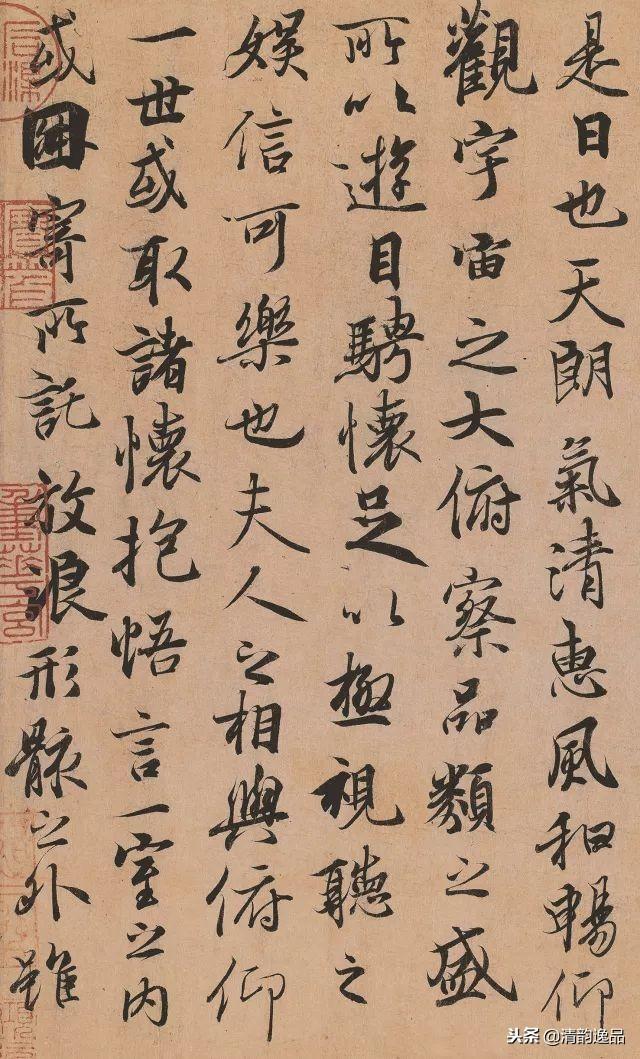 是日也天朗氣清惠風和暢仰
觀宇宙之大俯察品類之盛
所以遊目騁懷足以極視聽之
娛信可樂也夫人之相與俯仰
一世或取諸懷抱悟言一室之內
或因寄所託放浪形骸之外雖
头条@清韵逸品